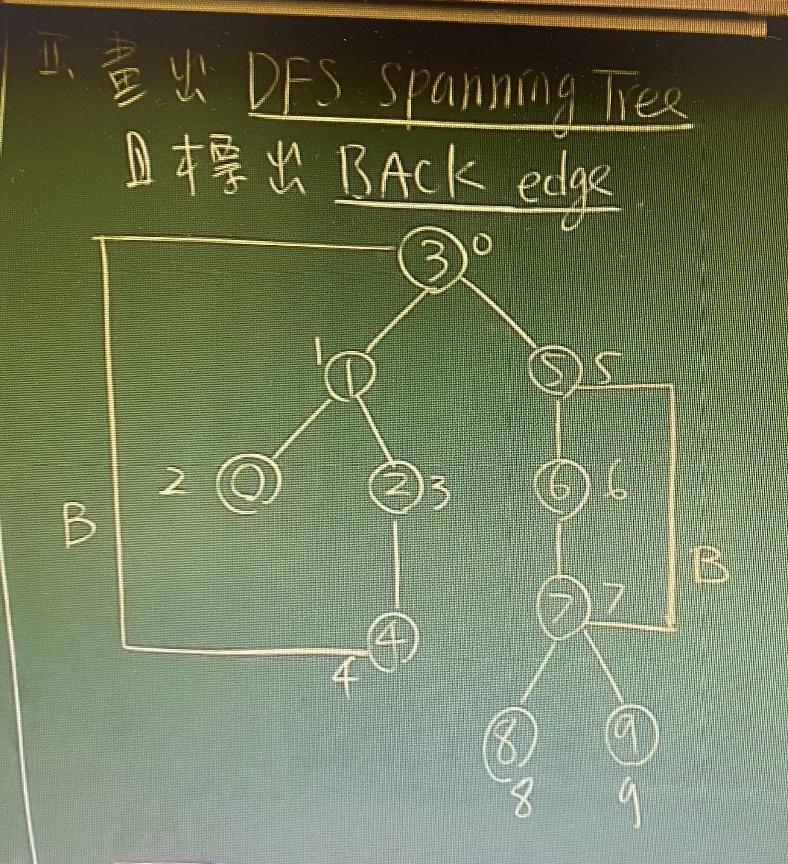 II、畫出 DFS Spanning Tree
且標出 BACK edge
3 0
1 1
5 5
2 0
2 3
6 6
B
B
7 7
4
4
8 9
8 9